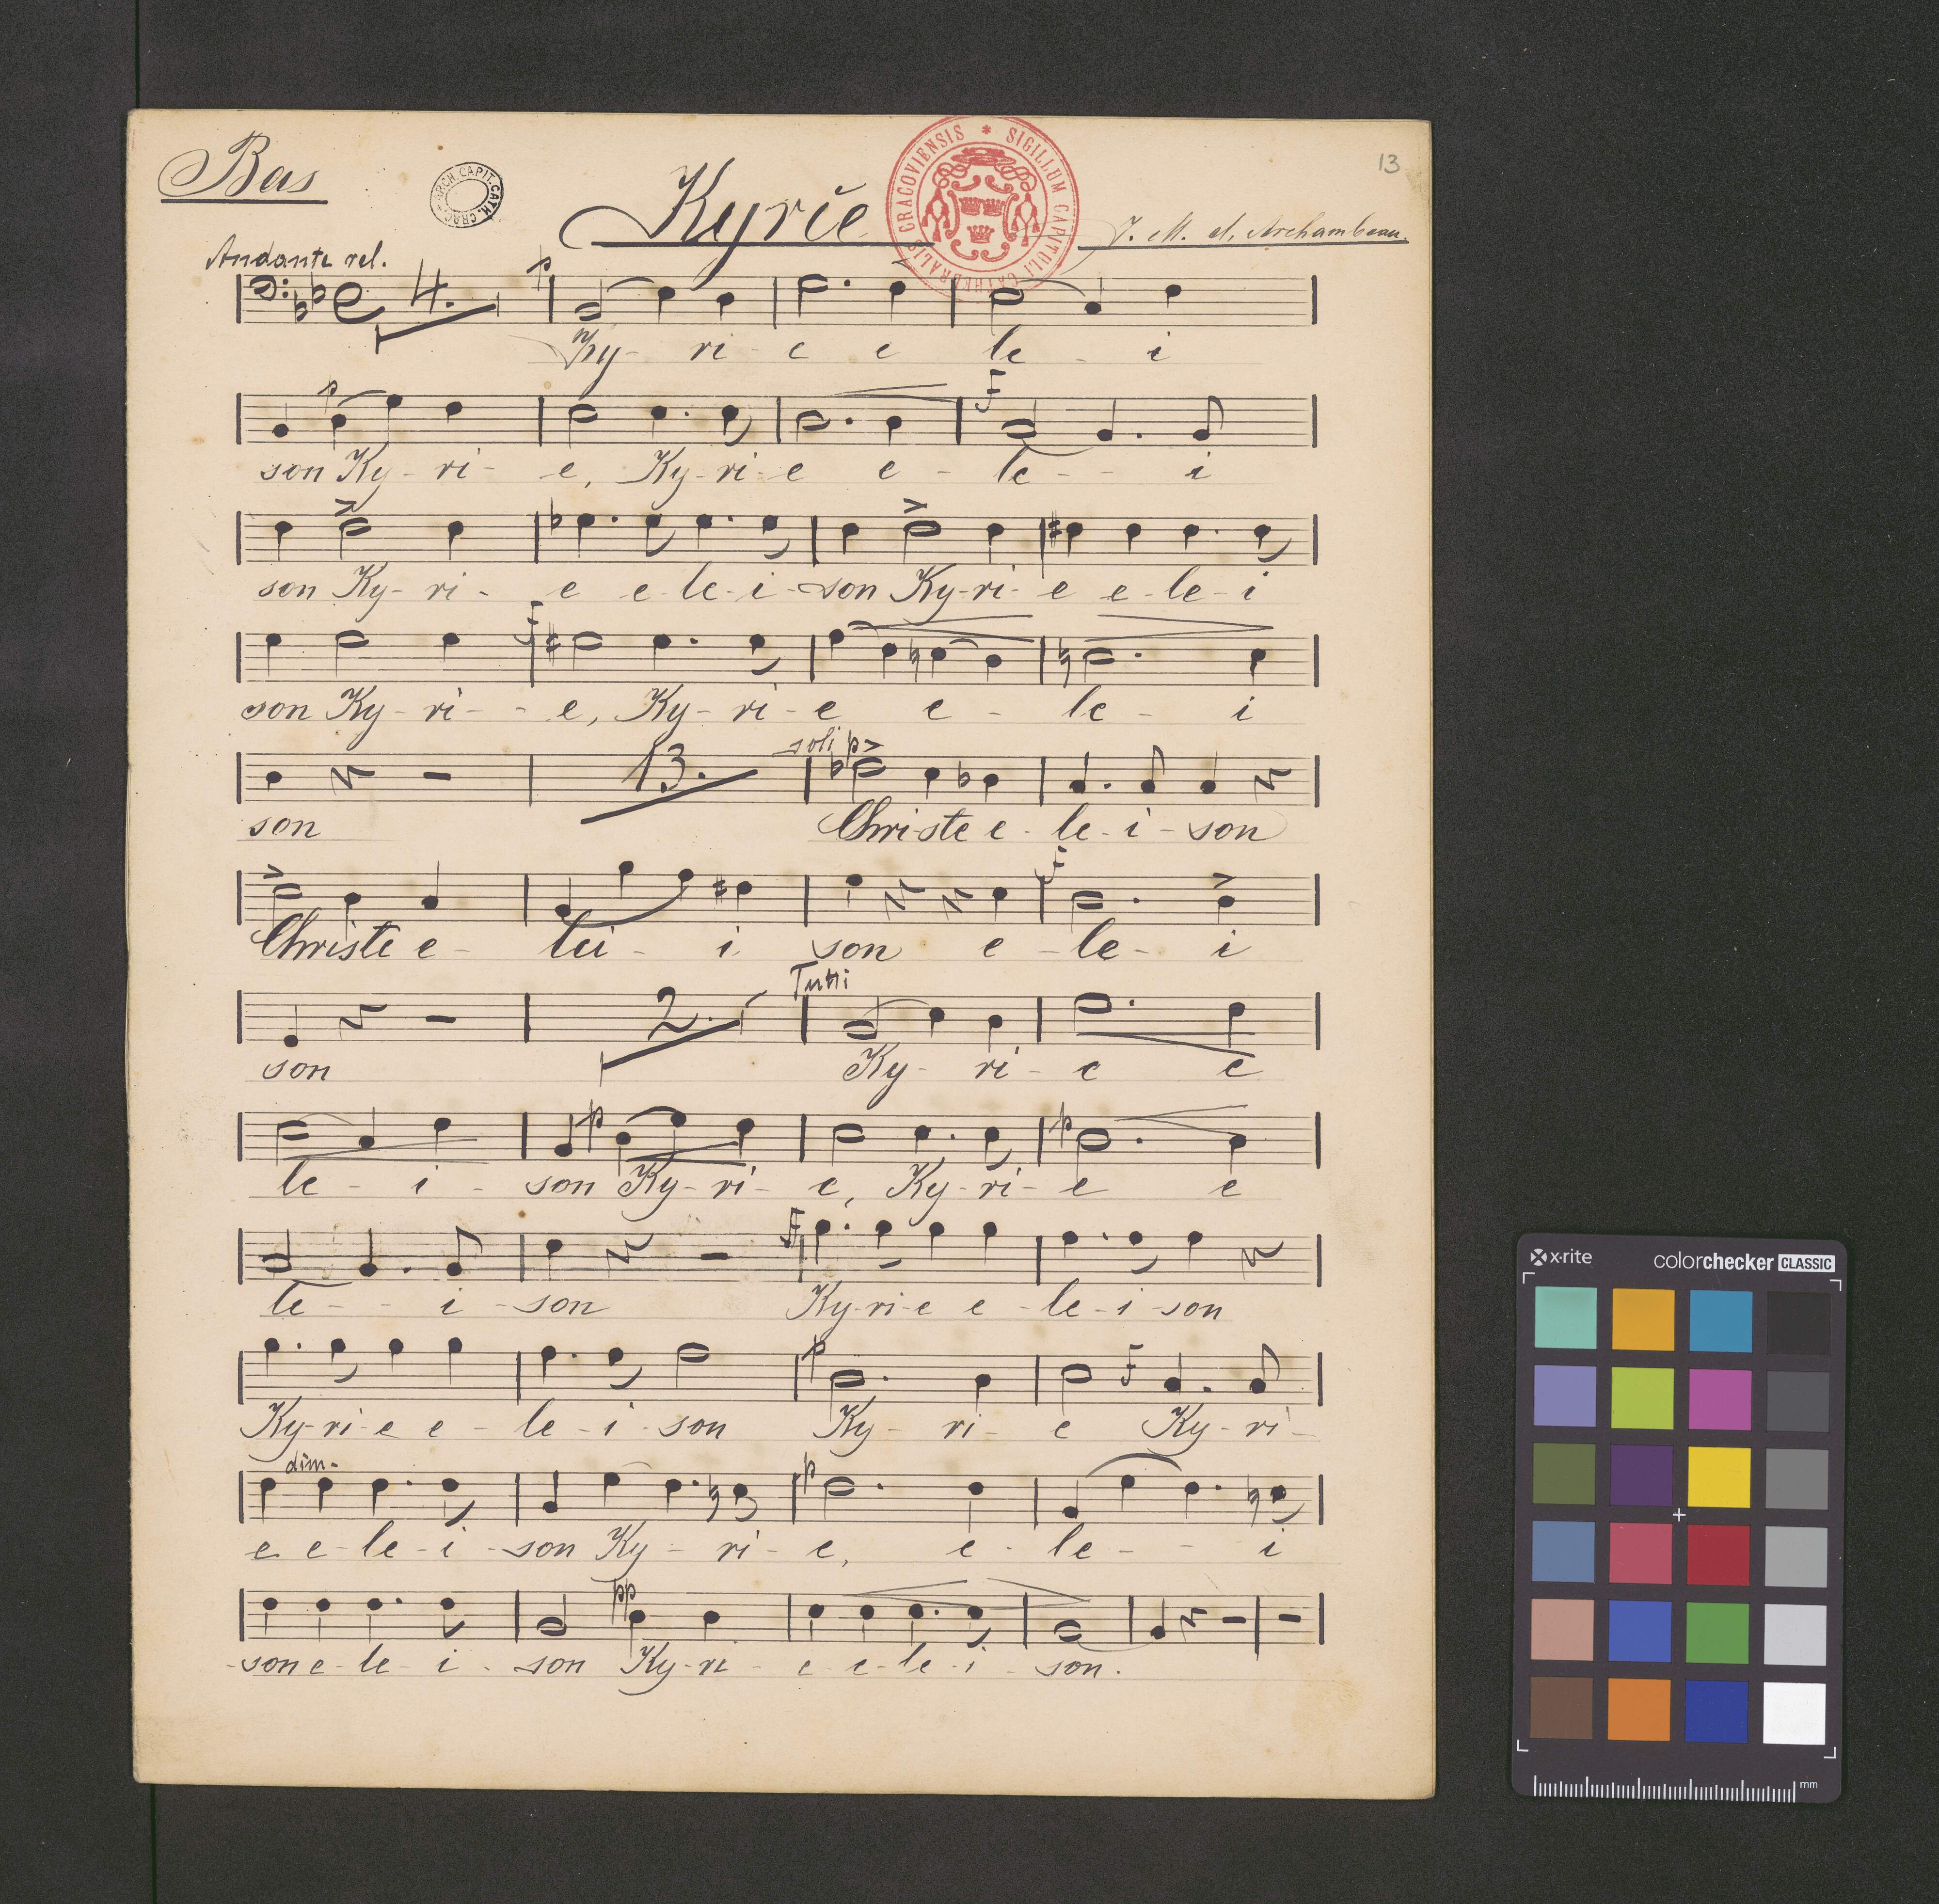 Bas
ARCH. CAPIT. CATH. CRAC.
Kyrie
SIGILLUM CAPITULI CATHEDRALIS CRACOVIENSIS *
13
J. M. d. Archambeau.
Andante rel.
4. p
Ky - ri - e e le - i
p f
son Ky - ri - e, Ky - ri - e e - le - - i
son Ky - ri - e e - le - i - son Ky - ri - e e - le - i
f
son Ky - ri - - e, Ky - ri - e e - le - i
13. soli p
son Christe e - le - i - son
f
Christe e - lei - i son e - le - i
2. Tutti
son Ky - ri - e e
p p
le - i - son Ky - ri - e, Ky - ri - e e
f
le - - i - son Ky - ri - e e - le - i - son
p f
Ky - ri - e e - le - i - son Ky - ri - e Ky - ri -
dim. p
e e - le - i - son Ky - ri - e, e - le - - i
pp
- son e - le - i - son Ky - ri - e e - le - i - son.
x-rite
colorchecker CLASSIC
mm